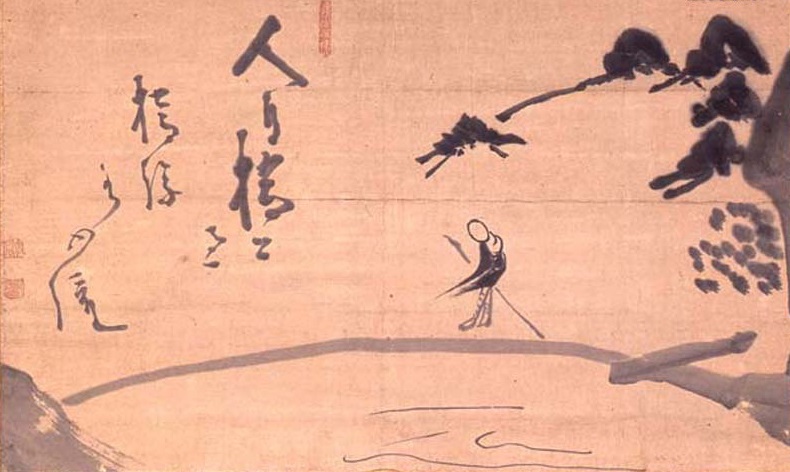 人自橋上
過
橋流
水不流